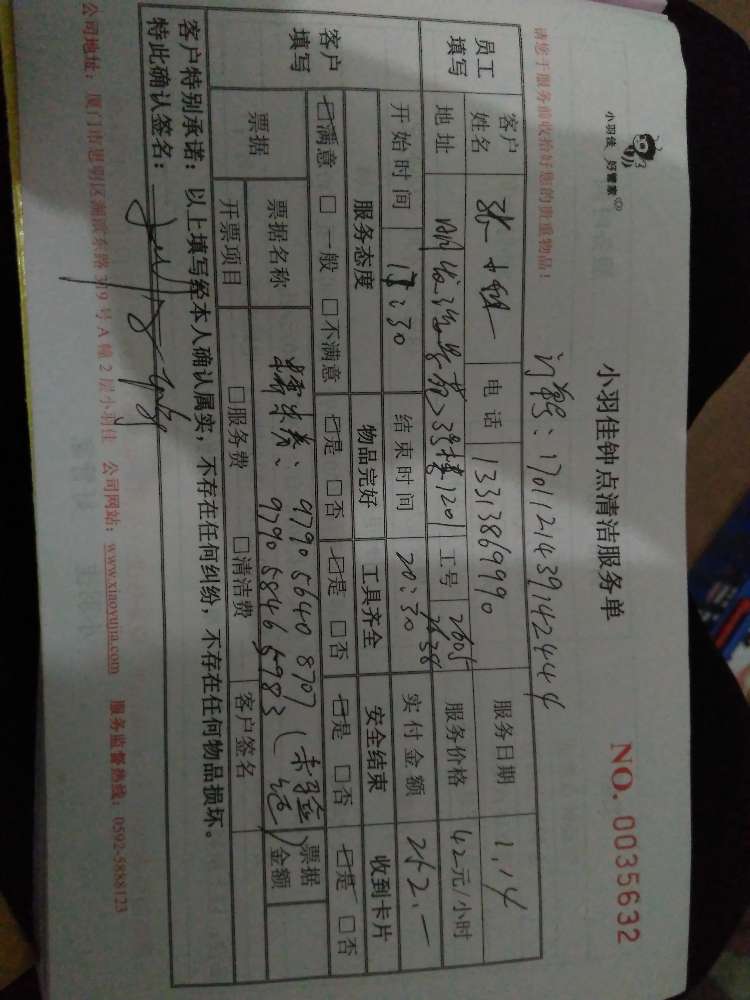 小羽佳 好管家
小羽佳钟点清洁服务单
NO. 0035632
请您于服务前收拾好您的贵重物品!
订单号:170112143914244 4
员工填写
客户姓名 张小姐 电话 13313869990 服务日期 1.14
地址 3号楼1201 工号 2605 2638 服务价格 42元/小时
开始时间 17:30 结束时间 20:30 实付金额 252.-
客户填写
服务态度 物品完好 工具齐全 安全结束 收到卡片
☑满意 □一般 □不满意 ☑是 □否 ☑是 □否 ☑是 □否 ☑是 □否
票据 票据名称 精彩券:9790 5640 8707 (未验证) 票据金额
9790 5846 5983
开票项目 □服务费 □清洁费 客户签名
客户特别承诺:以上填写经本人确认属实,不存在任何纠纷,不存在任何物品损坏。
特此确认签名:
公司地址:厦门市思明区湖滨东路319号A幢2层小羽佳 公司网站:www.xiaoyujia.com 服务监督热线:0592-5888123